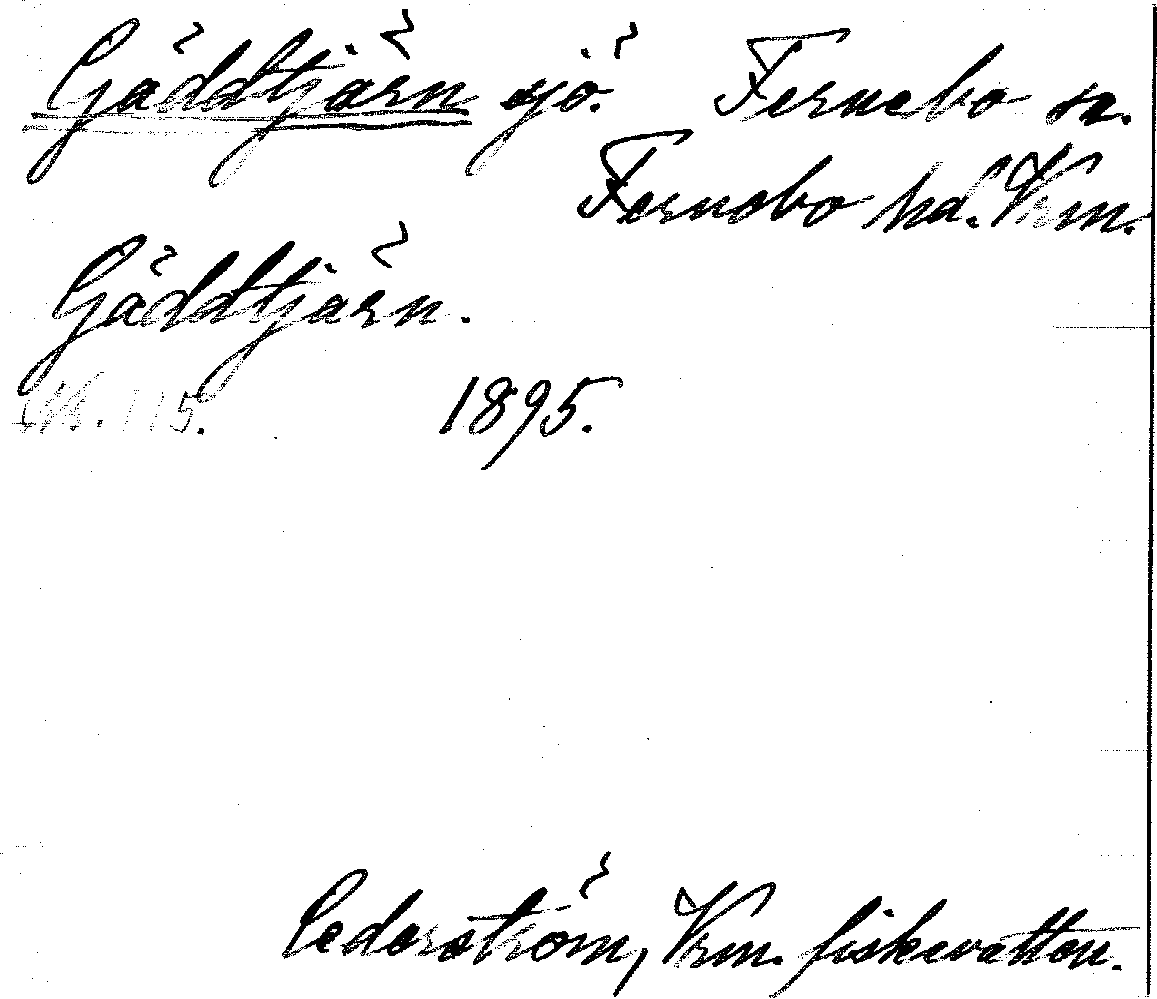 Gäddtjärn sjö. Fernebo sn.
Fernebo hd. Vrm.
Gäddtjärn.
115. 1895.
Cederström, Vrm. fiskevatten.